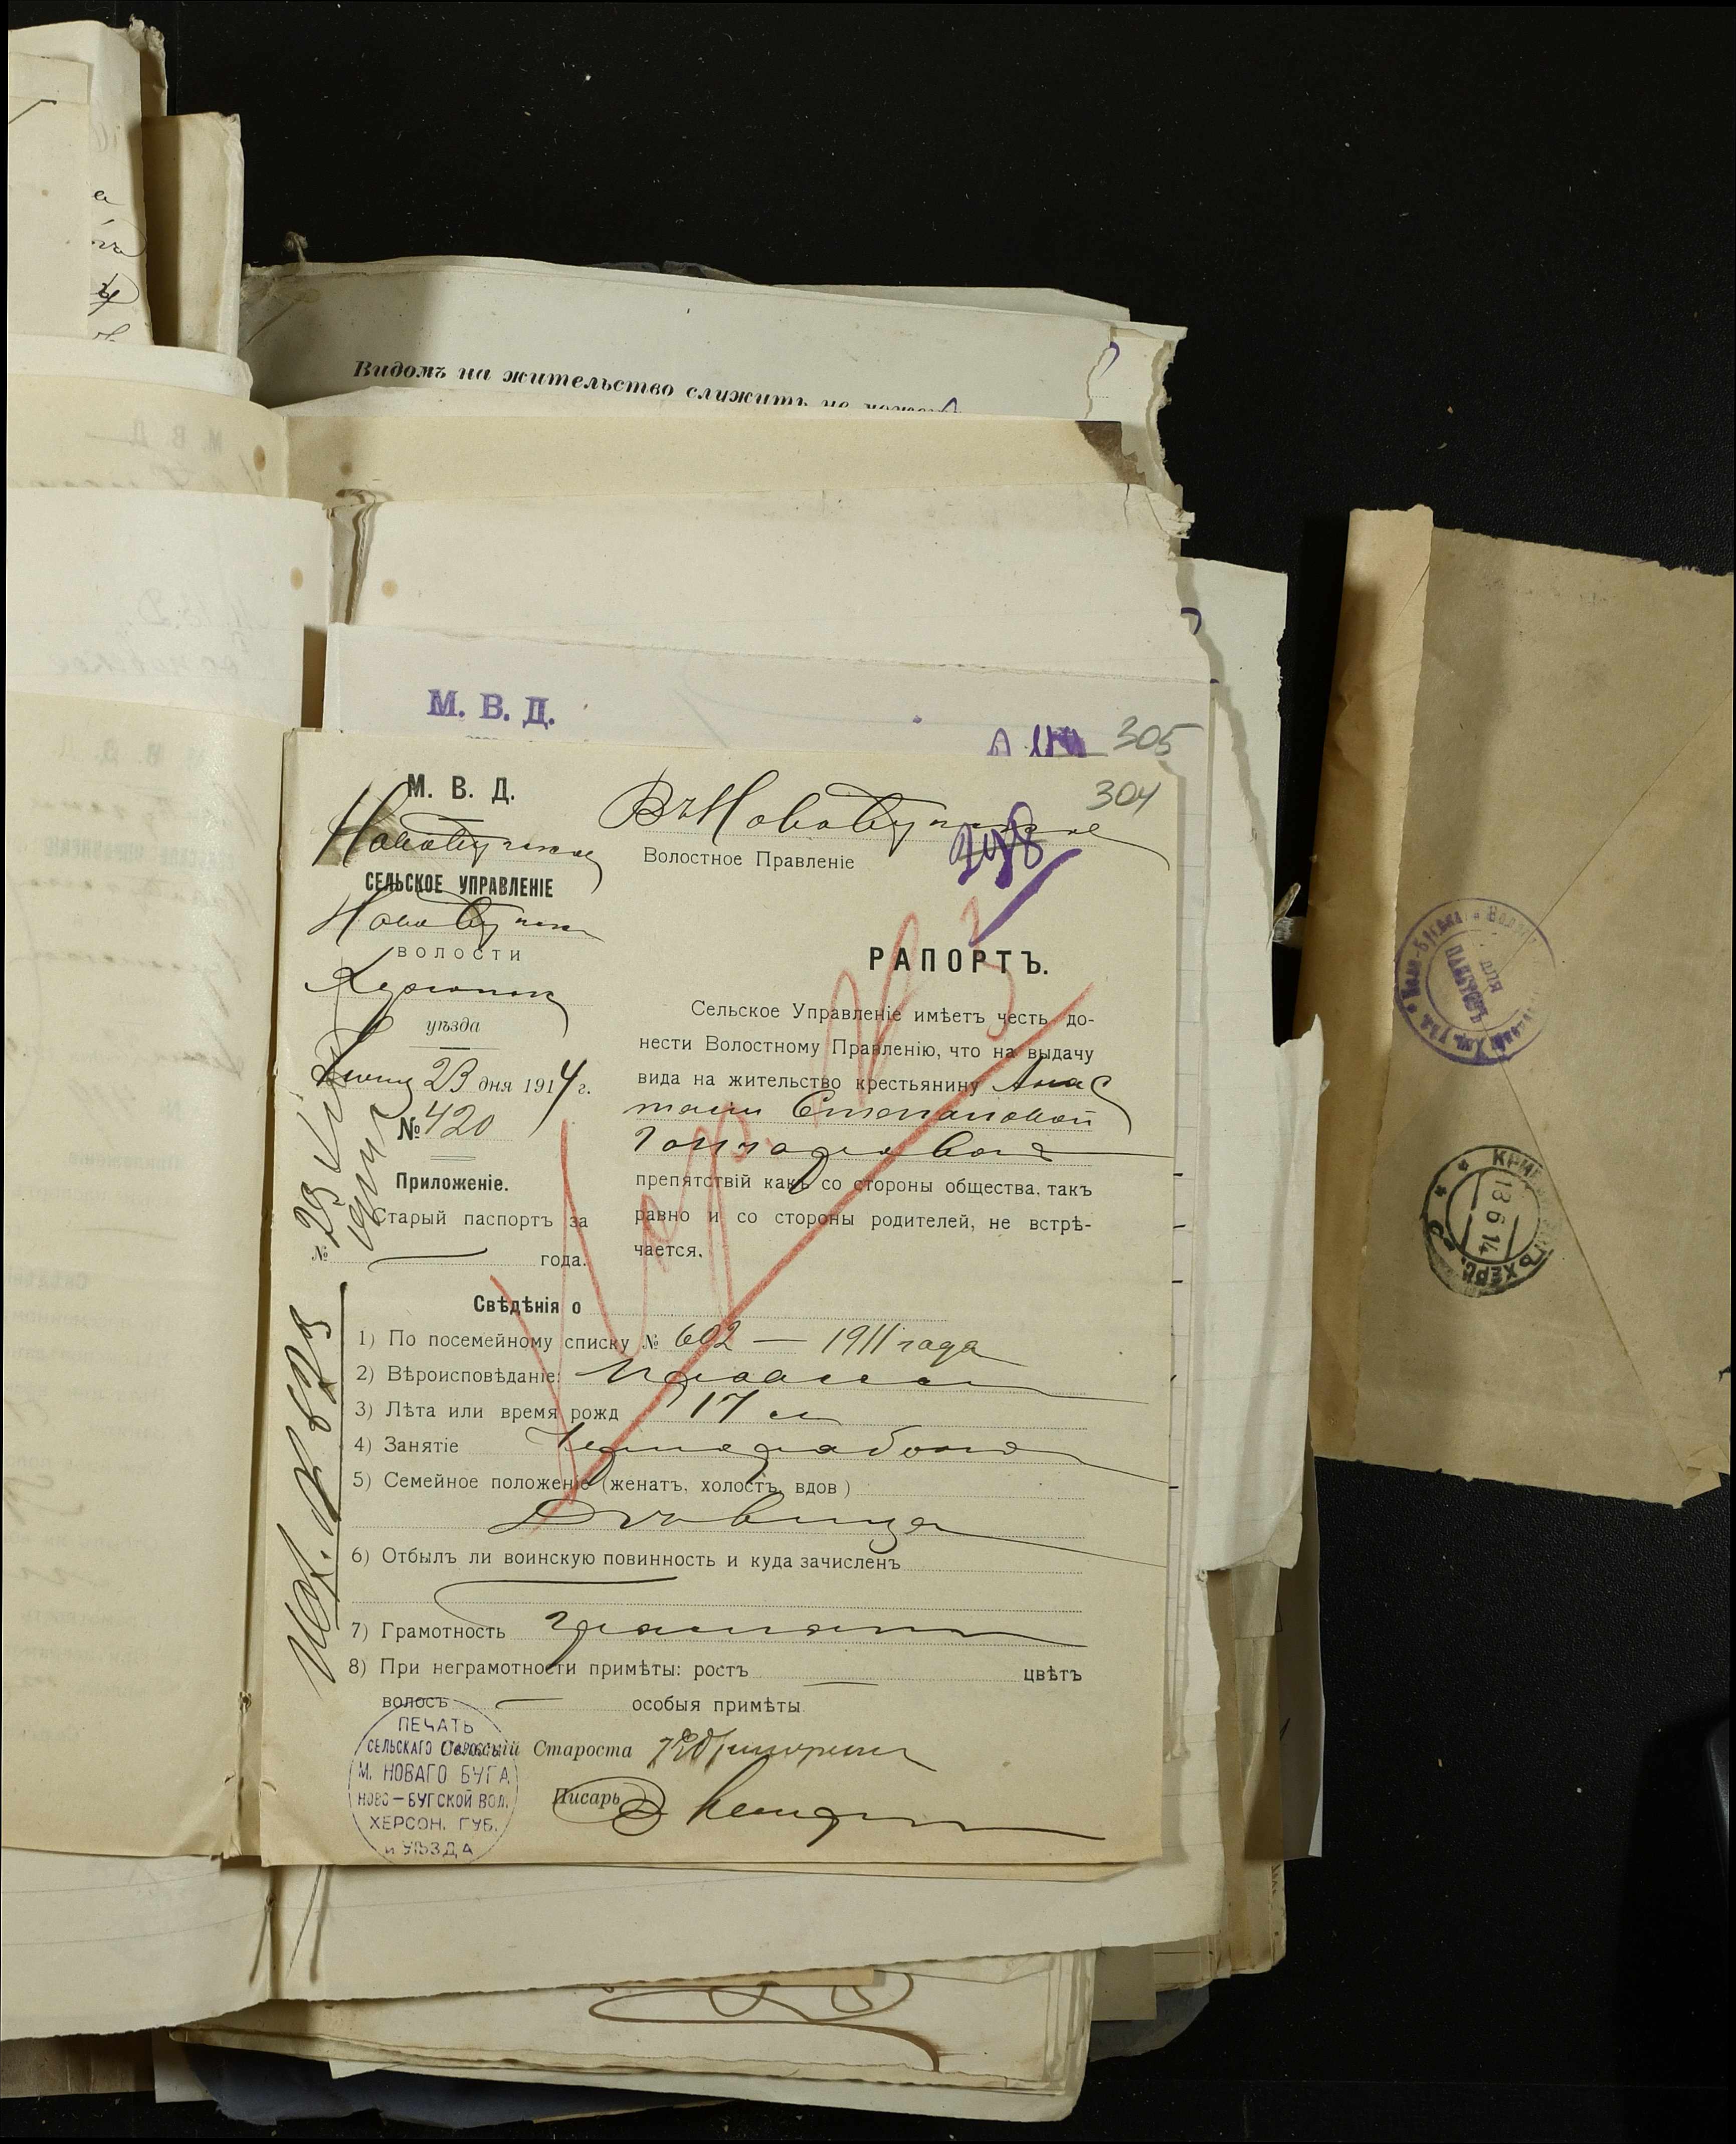 Видомъ на жительство служить не може
М. В. Д.
305
304
М. В. Д.
Новобугское
СЕЛЬСКОЕ УПРАВЛЕНІЕ
Новобугской
ВОЛОСТИ
Херсонск
уѣзда
23 дня 1914 г.
№ 420
Приложеніе.
Старый паспортъ за
№ года.
Въ Новобугское
Волостное Правленіе
298
РАПОРТЪ.
Сельское Управленіе имѣетъ честь до-
нести Волостному Правленію, что на выдачу
вида на жительство крестьянину Анас
тасіи Степановой
препятствій какъ со стороны общества, такъ
равно и со стороны родителей, не встрѣ-
чается.
Свѣдѣнія о
1) По посемейному списку № 602 — 1911 года
2) Вѣроисповѣданіе: Православн
3) Лѣта или время рожд 17 л
4) Занятіе Чернорабоч
5) Семейное положеніе (женатъ, холостъ, вдов )
Дѣвица
6) Отбылъ ли воинскую повинность и куда зачисленъ
7) Грамотность грамотн
8) При неграмотности примѣты: ростъ цвѣтъ
волосъ особыя примѣты
Сельскій Староста
Писарь
ПЕЧАТЬ
СЕЛЬСКАГО СТАРОСТЫ
М. НОВАГО БУГА
НОВО-БУГСКОЙ ВОЛ.
ХЕРСОН. ГУБ.
и УѢЗДА
Исх. № 2
13 6 14